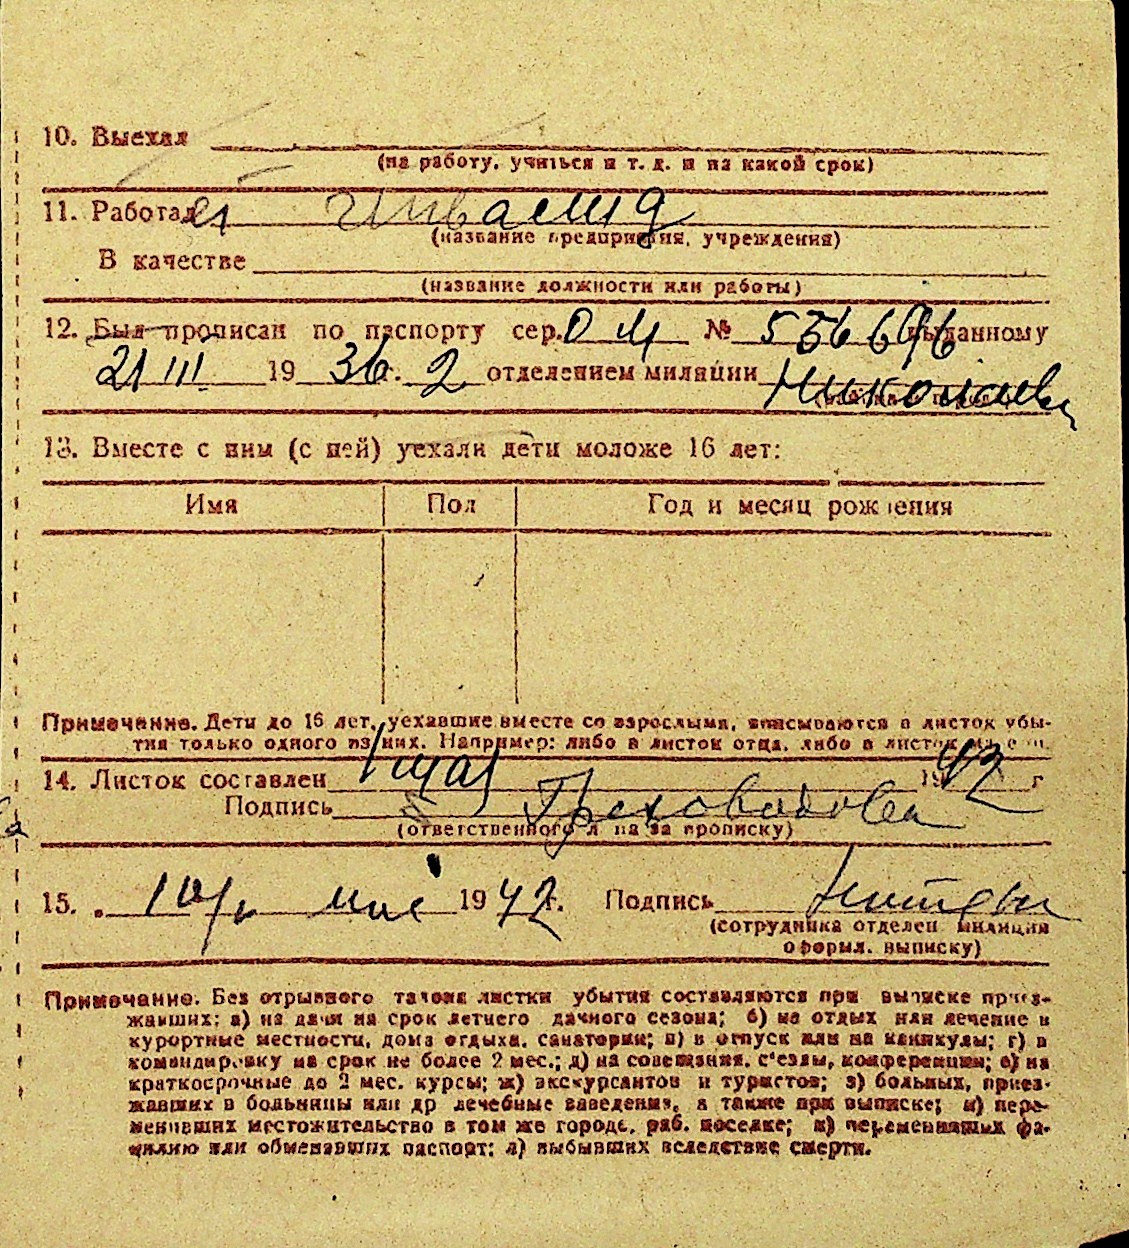 10. Выехал
(на работу, учиться и т. д. и на какой срок)
11. Работал Инвалид
(название предприятия, учреждения)
В качестве
(название должности или работы)
12. Был прописан по паспорту сер. ОМ № 556696 выданному
21 III 1936 г. 2 отделением милиции Николаев
13. Вместе с ним (с ней) уехали дети моложе 16 лет:
Имя Пол Год и месяц рождения
Примечание. Дети до 16 лет, уехавшие вместе со взрослыми, вписываются в листок убы-
тия только одного из них. Например: либо в листок отца, либо в листок матери.
14. Листок составлен 1 мая 1942 г
Подпись
(ответственного лица за прописку)
15. 10/V мая 1942 г. Подпись
(сотрудника отделен. милиции
оформл. выписку)
Примечание. Без отрывного талона листки убытия составляются при выписке приез-
жавших: а) на дачи на срок летнего дачного сезона; б) на отдых или лечение в
курортные местности, дома отдыха, санатории; в) в отпуск или на каникулы; г) в
командировку на срок не более 2 мес.; д) на совещания, с'езды, конференции; е) на
краткосрочные до 2 мес. курсы; ж) экскурсантов и туристов; з) больных, приез-
жавших в больницы или др лечебные заведения, а также при выписке; и) пере-
менивших местожительство в том же городе, раб. поселке; к) переменивших фа-
милию или обменявших паспорт; л) выбывших вследствие смерти.